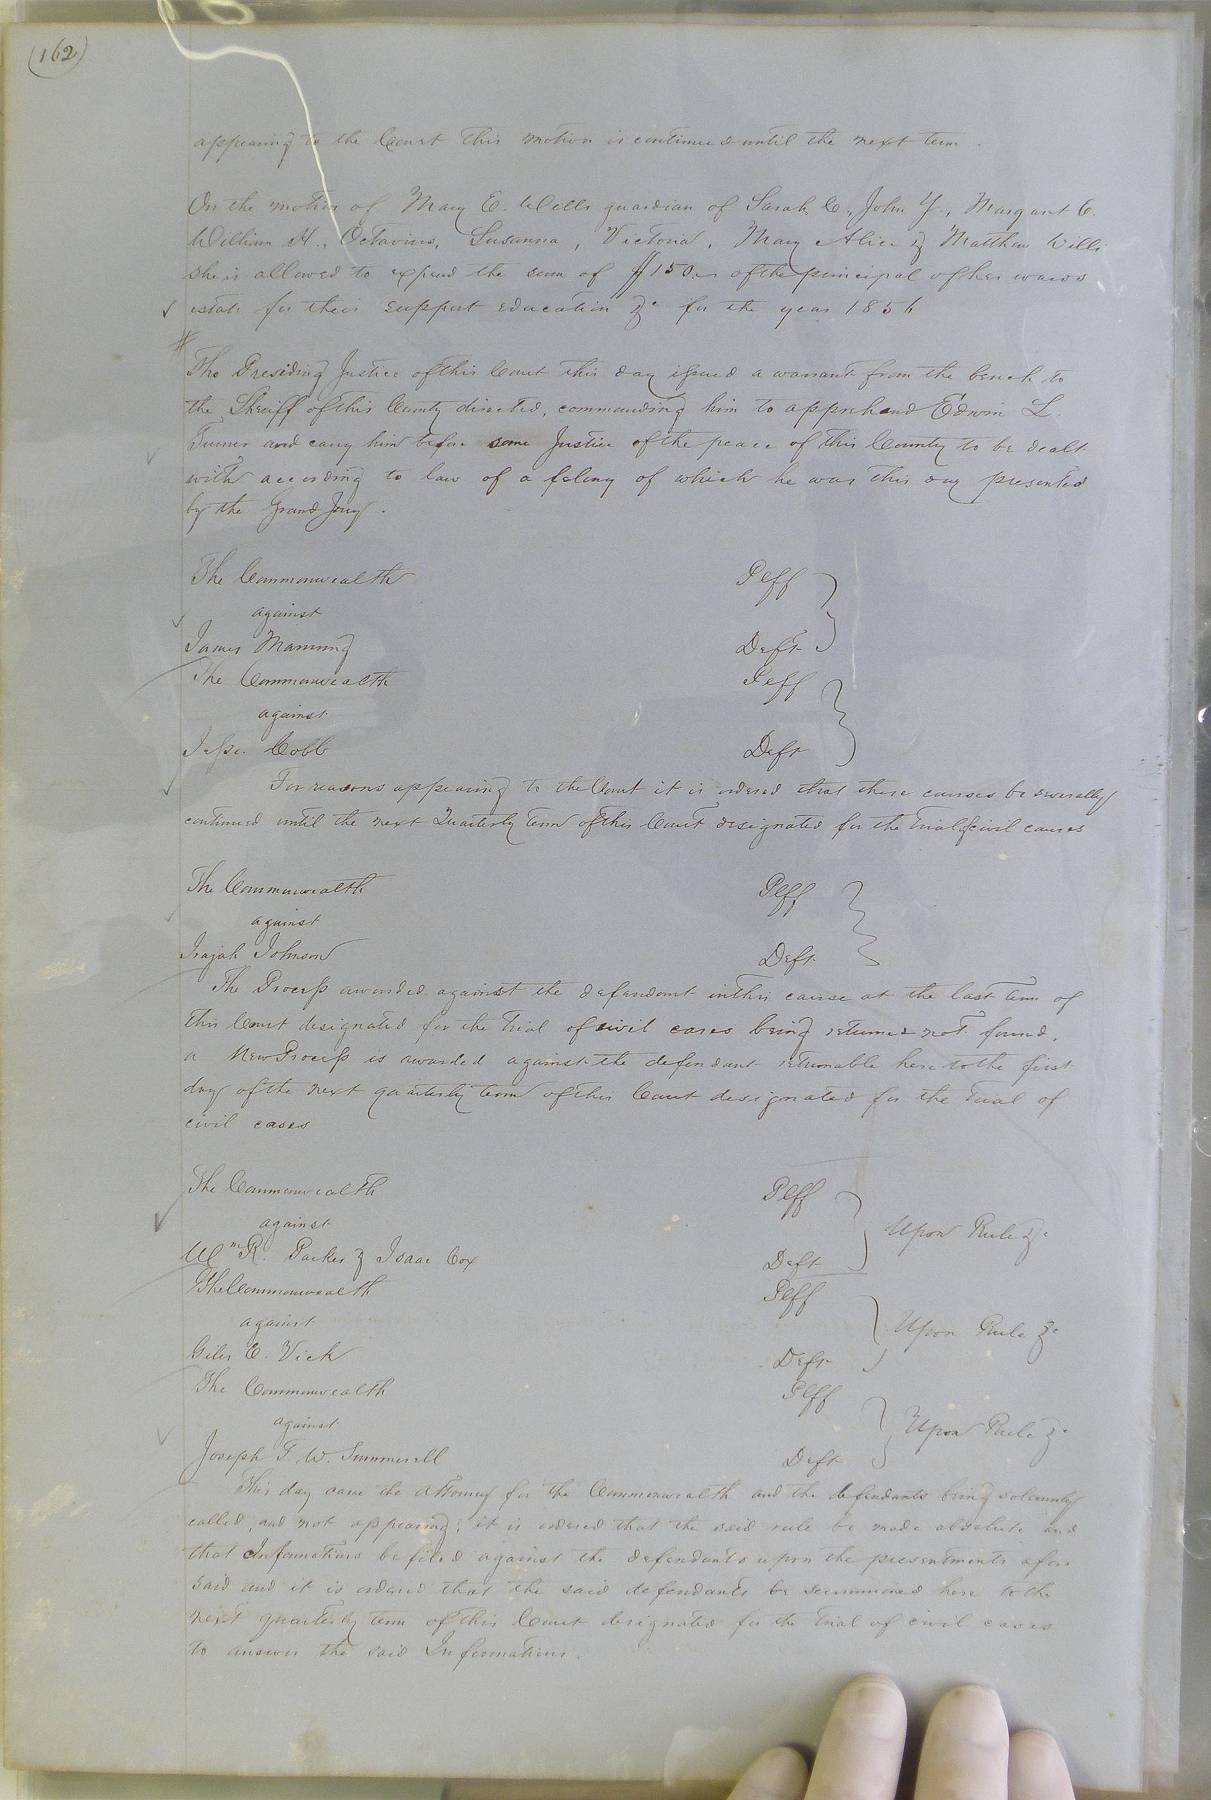 (162)
appearing to the Court this motion is continued until the next term.
On the motion of Mary E. Wills guardian of Sarah C., John Y., Margaret C.
William H., Octavius, Susanna, Victoria, Mary Alice & Matthew Wills
she is allowed to expend the sum of $150. of the principal of her wards
estate for their support education &c for the year 1856
The Presiding Justice of this Court this day issued a warrant from the bench to
the Sheriff of this County directed, commanding him to apprehend Edwin L.
Turner and carry him before some Justice of the peace of this County to be dealt
with according to law of a felony of which he was this day presented
by the Grand Jury.
The Commonwealth Plff
against
James Manning Deft
The Commonwealth Plff
against
Jesse Cobb Deft
For reasons appearing to the Court it is ordered that these causes be severally
continued until the next Quarterly Term of this Court designated for the Trial of civil causes
The Commonwealth Plff
against
Isajah Johnson Deft
The Process awarded against the defendant in this cause at the last term of
this Court designated for the Trial of civil cases being returned not found,
a New Process is awarded against the defendant returnable here to the first
day of the next quarterly term of this Court designated for the Trial of
civil cases
The Commonwealth Plff
against Upon Rule &c
Wm R. Parker & Isaac Cox Deft
The Commonwealth Plff
against Upon Rule &c
Giles C. Vick Deft
The Commonwealth Plff
against Upon Rule &c
Joseph T. W. Summerell Deft
This day came the attorney for the Commonwealth and the defendants being solemnly
called, and not appearing, it is ordered that the said rule be made absolute and
that Informations be filed against the defendants upon the presentments afore
said and it is ordered that the said defendants be summoned here to the
next quarterly term of this Court designated for the trial of civil cases
to answer the said Informations.